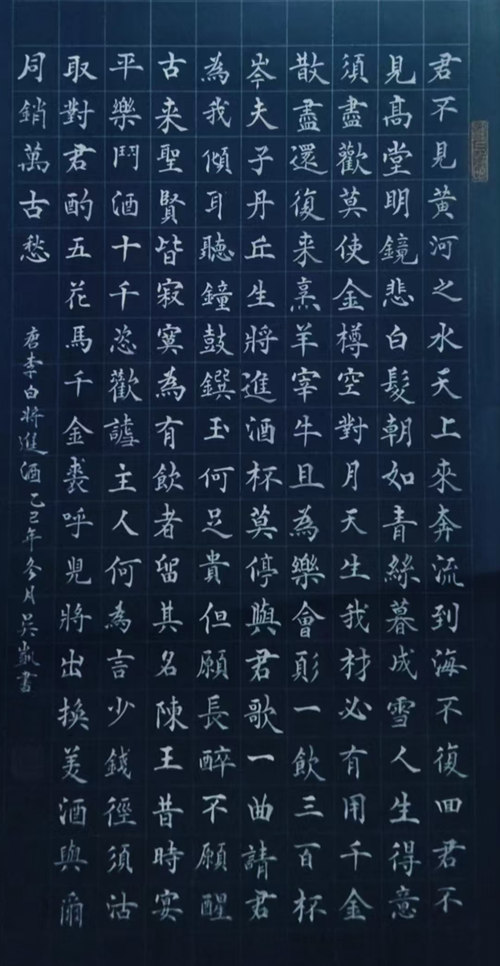 君不見黃河之水天上來奔流到海不復囬君不
見高堂明鏡悲白髮朝如青絲暮成雪人生得意
須盡歡莫使金樽空對月天生我材必有用千金
散盡還復来烹羊宰牛且為樂會須一飲三百杯
岑夫子丹丘生將進酒杯莫停與君歌一曲請君
為我傾耳聽鐘鼓饌玉何足貴但願長醉不願醒
古来聖賢皆寂寞為有飲者留其名陳王昔時宴
平樂鬥酒十千恣歡謔主人何為言少錢徑須沽
取對君酌五花馬千金裘呼兒將出換美酒與爾
同銷萬古愁
唐李白將進酒乙巳年冬月吴凱書